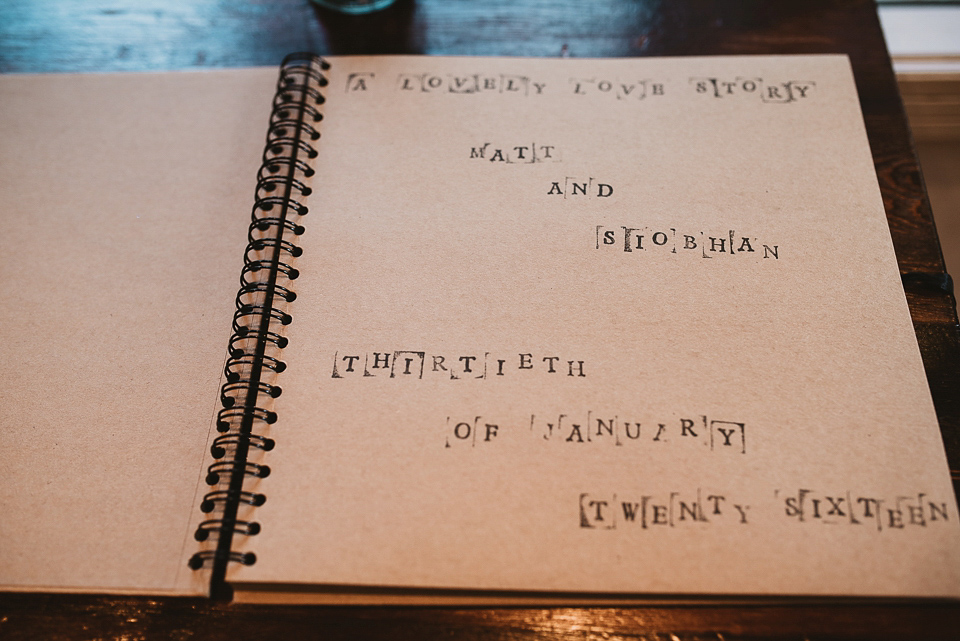 A LOVELY LOVE STORY
MATT
AND
SIOBHAN
THIRTIETH
OF JANUARY
TWENTY SIXTEEN